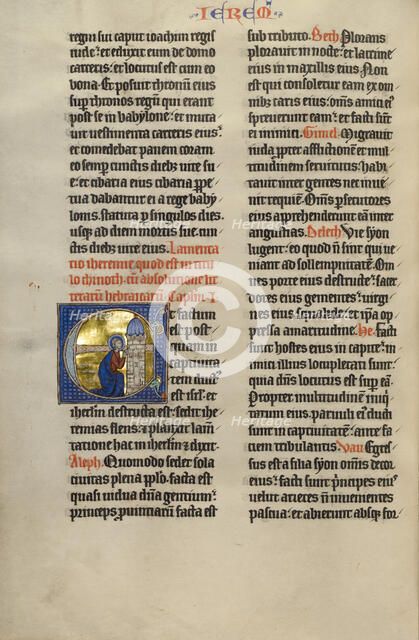 IEREM
regni sui caput ioachim regis
iude et eduxit eum de domo
carceris et locutus est cum eo
bona Et posuit thronum eius
sup thronos regum qui erant
post se in babylone et muta
uit uestimenta carceris eius
et comedebat panem coram
eo semp cunctis dieb uite su
e et cibaria eius cibaria ppe
tua dabantur ei a rege baby
lonis statuta p singulos dies
usq ad diem mortis sue cun
ctis dieb uite eius Lamenta
tio iheremie quod est in titu
lo cum absolutione lit
terarum hebraicarum Capitulum I
Et factum
est post
quam in
captiuita
tem
est isrl et
ihrlm destructa est sedit ihe
remias flens et planxit lam
tatione hac in ihrlm et dixit
Aleph Quomodo sedet sola
ciuitas plena pplo facta est
quasi uidua dna gentium
princeps prouinciarum facta est
sub tributo Beth Plorans
plorauit in nocte et lacrime
eius in maxillis eius Non
est qui consoletur eam ex om
nib caris eius oms amici ei
spreuerunt eam et facti sunt
ei inimici Gimel Migrauit
iuda ppter afflictionem et mul
titudinem seruitutis habi
tauit inter gentes nec inue
nit requiem Oms psecutores
eius apprehenderunt eam inter
angustias Deleth Vie syon
lugent eo quod non sint qui ueni
ant ad sollempnitatem Om
nes porte eius destructe sacer
dotes eius gementes uirgi
nes eius squalide et ipsa op
pressa amaritudine He Facti
sunt hostes eius in capite in
imici illius locupletati sunt
quia dns locutus est sup eam
Propter multitudinem iniqui
tatum eius Paruuli eius ducti
sunt in captiuitatem ante fa
ciem tribulantis Vau Egres
sus est a filia syon omnis decor
eius facti sunt principes eius
uelut arietes non inuenientes
pascua et abierunt absque for
Heritage
Heritage
Heritage
Heritage